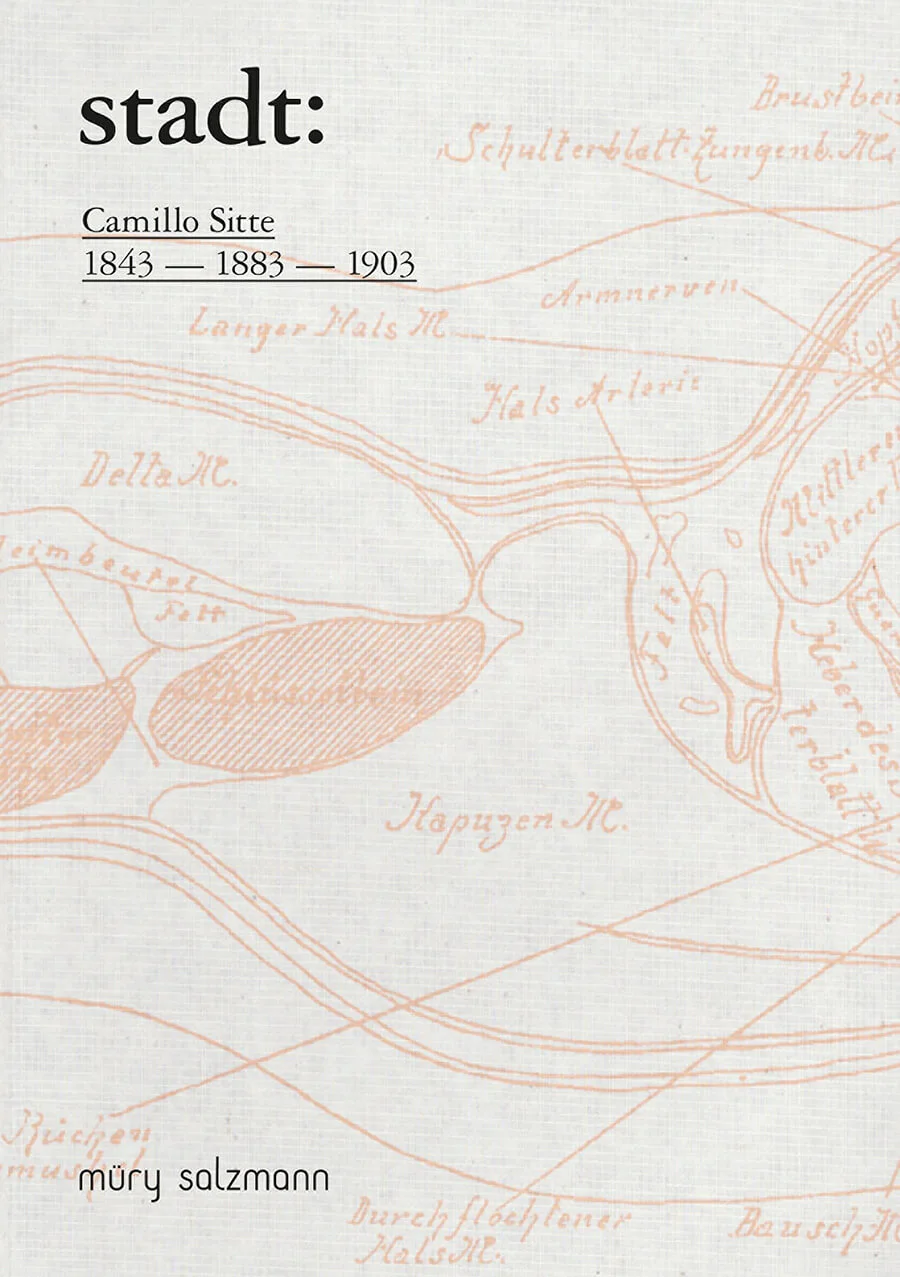 stadt:
Camillo Sitte
1843 — 1883 — 1903
Brustbein
Schulterblatt-Zungenb. M.
Armnerven
Langer Hals M.
Hals Arterie
Delta M.
Mittlerer
hinterer
leimbeutel
Fett
Fett
Schlüsselbein
Heber des
terblatt
Kapuzen M.
Rücken
muskel
müry salzmann
Durchflochtener
Hals M.
Bausch M.